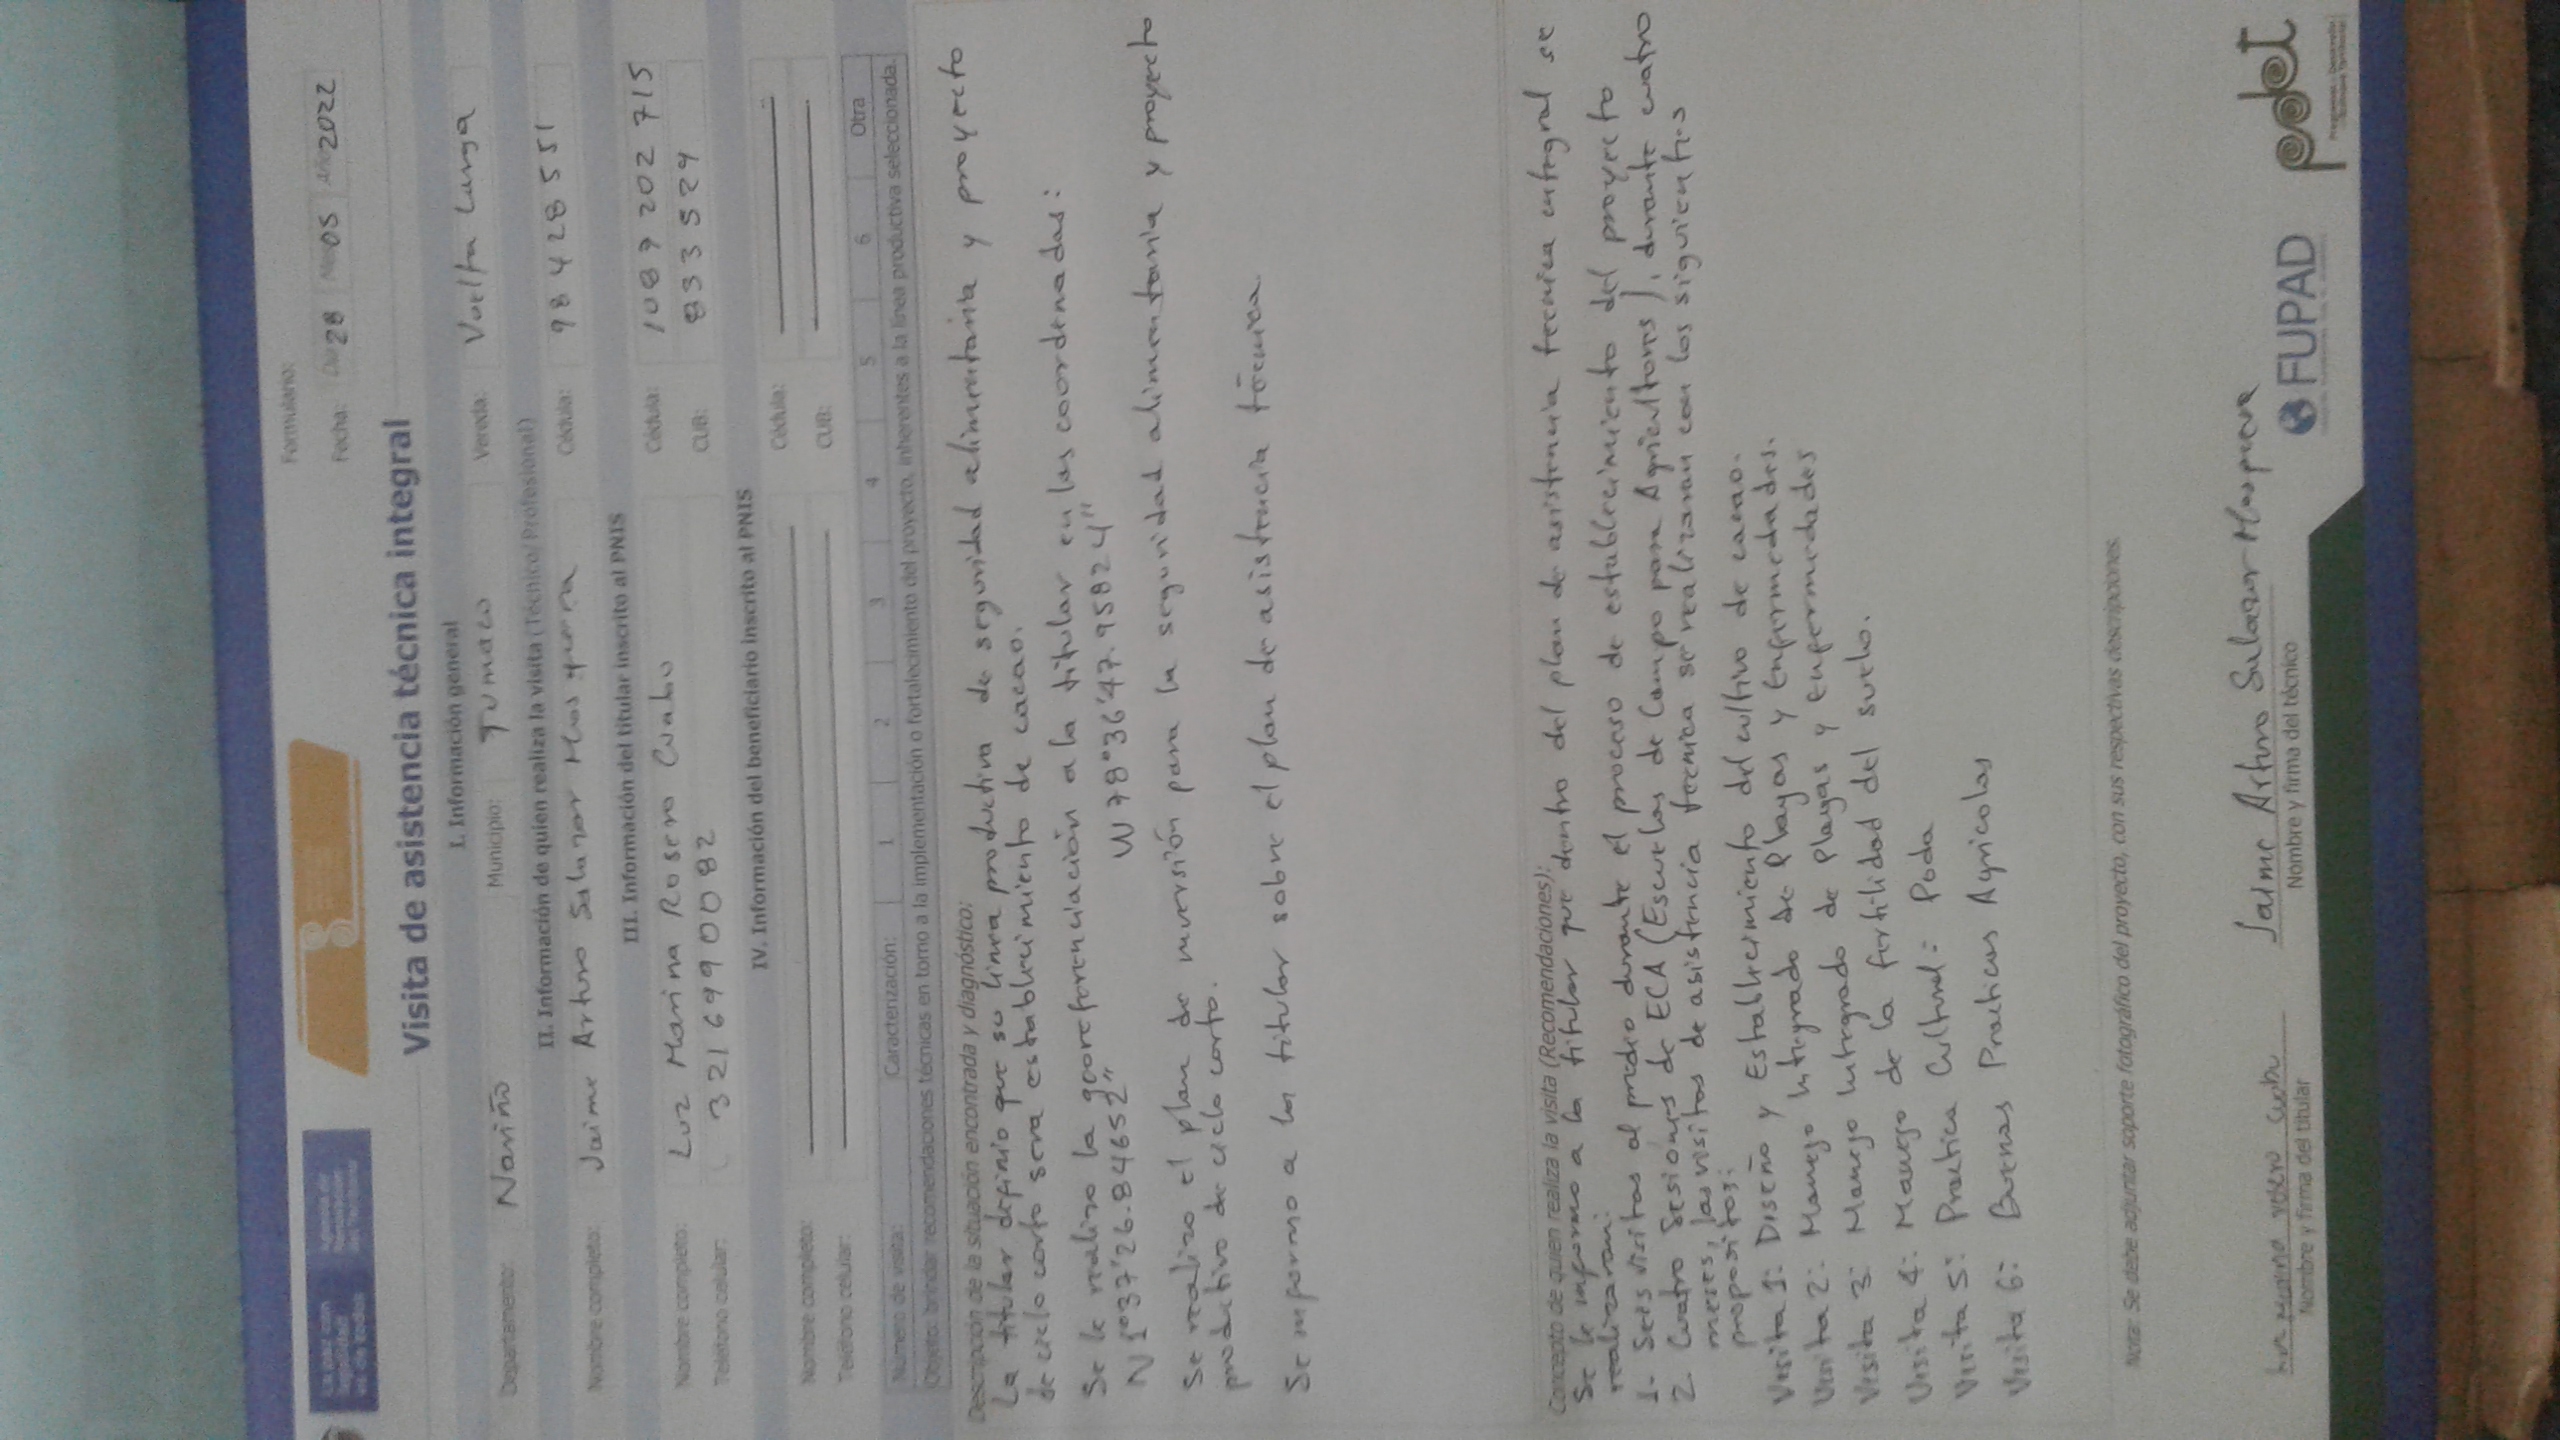 Formulario:
Fecha: Día 28 Mes 05 Año 2022
Visita de asistencia técnica integral
I. Información general
Departamento: Nariño Municipio: Tumaco Vereda: Vuelta Larga
II. Información de quien realiza la visita (Técnico/ Profesional)
Nombre completo: Jaime Arturo Salazar Mosquera Cédula: 98428551
III. Información del titular inscrito al PNIS
Nombre completo: Luz Marina Rosero Cuabu Cédula: 1087202715
Teléfono celular: 3216990082 CUB: 833524
IV. Información del beneficiario inscrito al PNIS
Nombre completo: Cédula:
Teléfono celular: CUB:
Número de visita: Caracterización: 1 2 3 4 5 6 Otra
Objeto: brindar recomendaciones técnicas en torno a la implementación o fortalecimiento del proyecto, inherentes a la línea productiva seleccionada.
Descripción de la situación encontrada y diagnóstico:
La titular definio que su linea productiva de seguridad alimentaria y proyecto
de ciclo corto sera establecimiento de cacao.
Se le realizo la georeferenciación a la titular en las coordenadas:
N 1°37'26.84652" W 78°36'47.95824"
Se realizo el plan de inversión para la seguridad alimentaria y proyecto
productivo de ciclo corto.
Se informo a la titular sobre el plan de asistencia técnica.
Concepto de quien realiza la visita (Recomendaciones):
Se le informo a la titular que dentro del plan de asistencia tecnica integral se
realizaran:
1- Seis visitas al predio durante el proceso de establecimiento del proyecto
2. Cuatro Sesiones de ECA (Escuelas de Campo para Agricultores), durante cuatro
meses, las visitas de asistencia tecnica se realizaran con los siguientes
propositos:
Visita 1: Diseño y Establecimiento del cultivo de cacao.
Visita 2: Manejo Integrado de Plagas y Enfermedades.
Visita 3: Manejo Integrado de Plagas y enfermedades
Visita 4: Manejo de la fertilidad del suelo.
Visita 5: Practica Cultural: Poda
Visita 6: Buenas Practicas Agricolas
Nota: Se debe adjuntar soporte fotográfico del proyecto, con sus respectivas descripciones.
Jaime Arturo Salazar Mosquera
Nombre y firma del titular Nombre y firma del técnico
FUPAD pdet